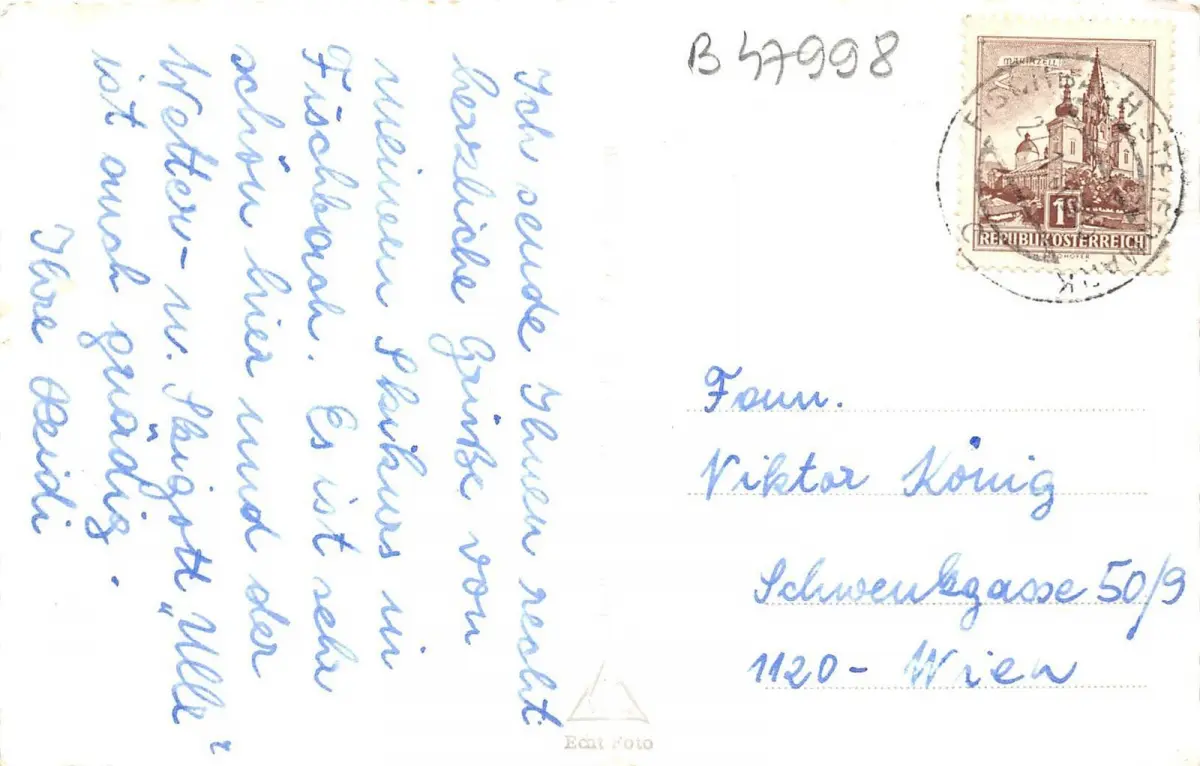 Ich sende Ihnen recht
herzliche Grüße von
meinem Skikurs in
Fischbach. Es ist sehr
schön hier und der
Wetter- u. Skigott „Ulle“
ist auch gnädig.
Ihre Heidi
B 47998
MARIAZELL
1S
REPUBLIK ÖSTERREICH
FISCHBACH STEIERMARK
Fam.
Viktor König
Schwenkgasse 50/9
1120 - Wien
Echt Foto